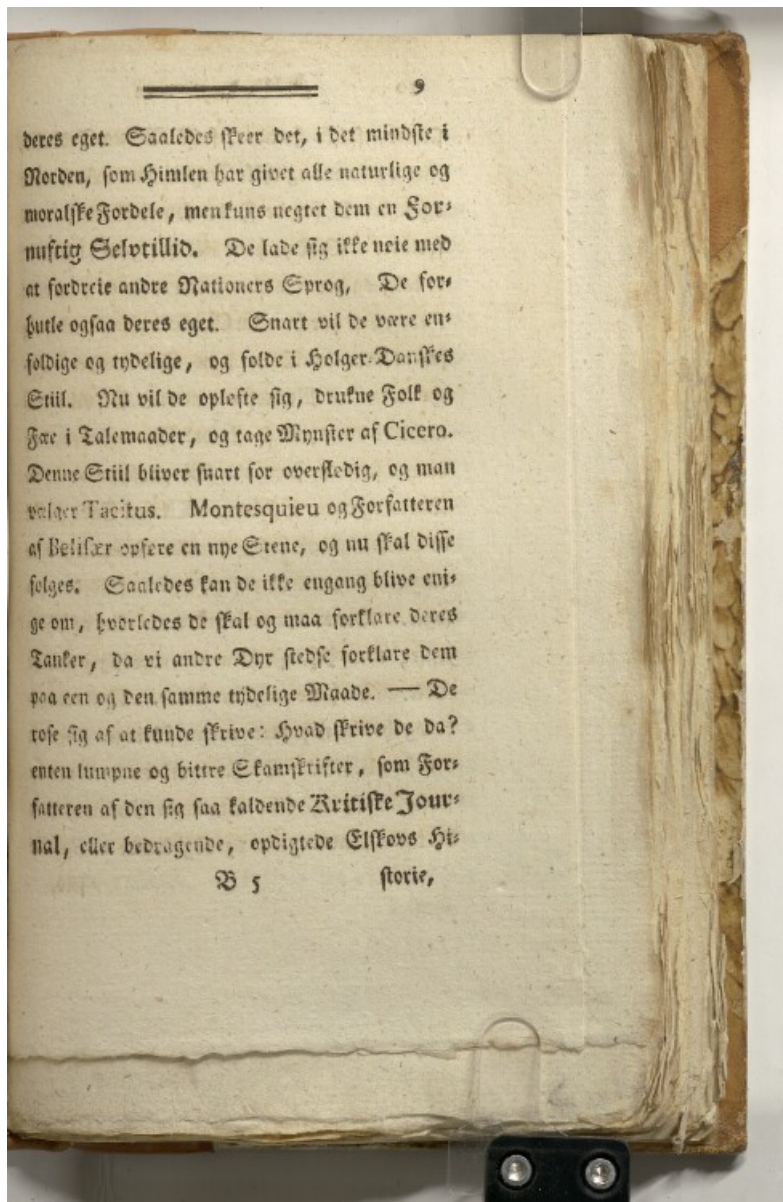 9
deres eget. Saaledes skeer det, i det mindste i
Norden, som Himlen har givet alle naturlige og
moralske Fordele, men kuns negtet dem en For⸗
nuftig Selvtillid. De lade sig ikke nøie med
at fordreie andre Nationers Sprog, De for⸗
hutle ogsaa deres eget. Snart vil de være en⸗
foldige og tydelige, og folde i Holger Danskes
Stiil. Nu vil de opløfte sig, drukne Folk og
Fæ i Talemaader, og tage Mynster af Cicero.
Denne Stiil bliver snart for overflødig, og man
vælger Tacitus. Montesquieu og Forfatteren
af Belisær opføre en nye Stene, og nu skal disse
følges. Saaledes kan de ikke engang blive eni⸗
ge om, hvorledes de skal og maa forklare deres
Tanker, da vi andre Dyr stedse forklare dem
paa een og den samme tydelige Maade. — De
rose sig af at kunde skrive: Hvad skrive de da?
enten lumpne og bittre Skamskrifter, som For⸗
fatteren af den sig saa kaldende Kritiske Jour⸗
nal, eller bedragende, opdigtede Elskovs Hi⸗
B 5 storie,